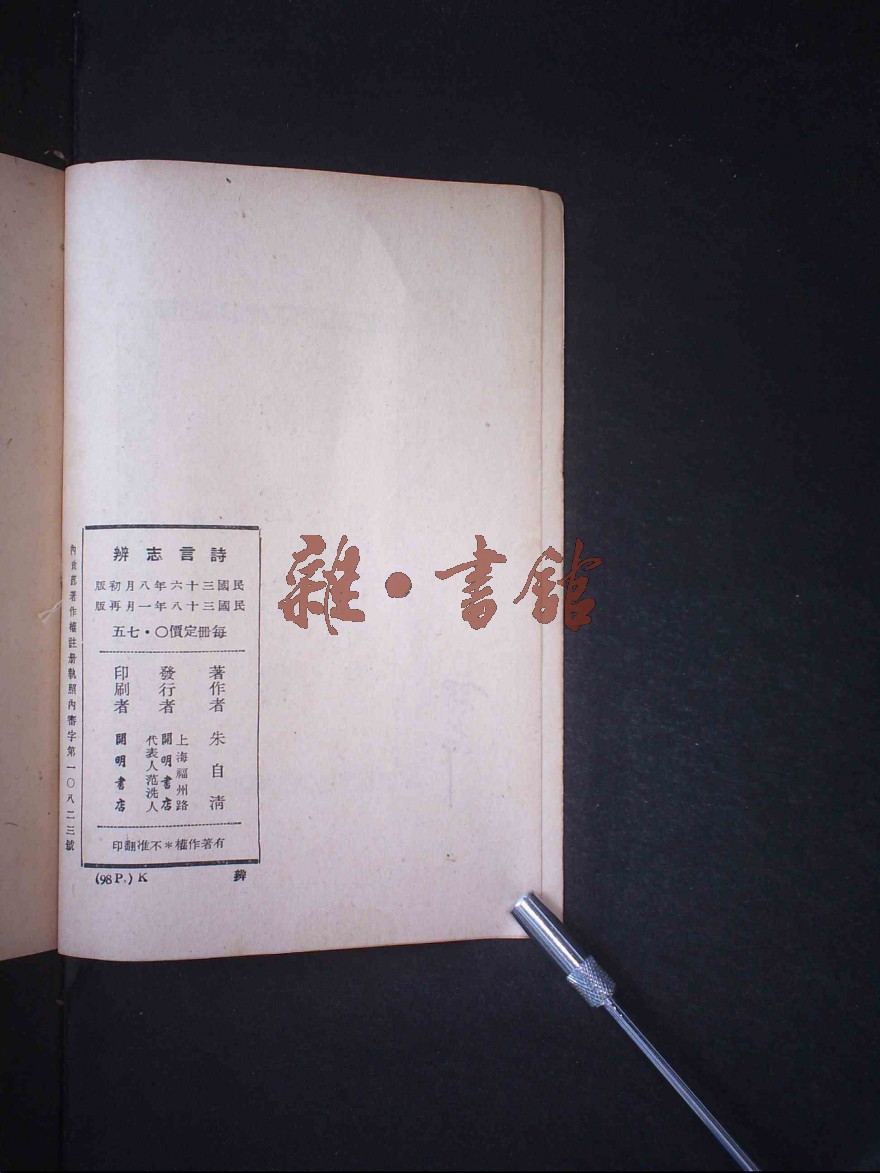 詩言志辨
民國三十六年八月初版
民國三十八年一月再版
每冊定價〇·七五
著作者 朱自清
發行者 上海福州路 開明書店 代表人范洗人
印刷者 開明書店
有著作權＊不准翻印
(98 P.) K 辨
內政部著作權註冊執照內審字第一〇八二三號
雜·書館